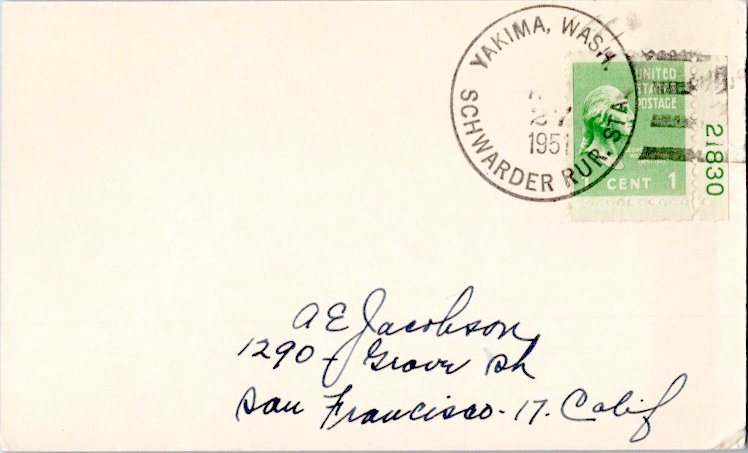 YAKIMA, WASH.
27
1951
SCHWARDER RUR. STA.
UNITED
STATES
POSTAGE
CENT 1
21830
A E Jacobson
1290 - Grove St
San Francisco - 17. Calif